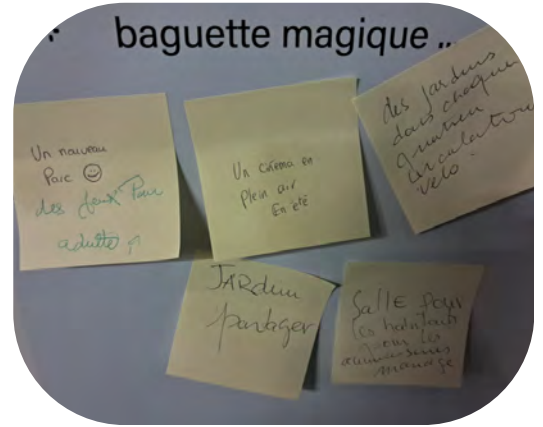 baguette magique ...
Un nouveau
Parc ☺
des jeux Pour
adulte
Un cinéma en
Plein air
En été
des jardins
dans chaque
quartier
circulation
vélo.
JARdin
partager
SallE pour
les habitants
pour les
anniversaires
mariage